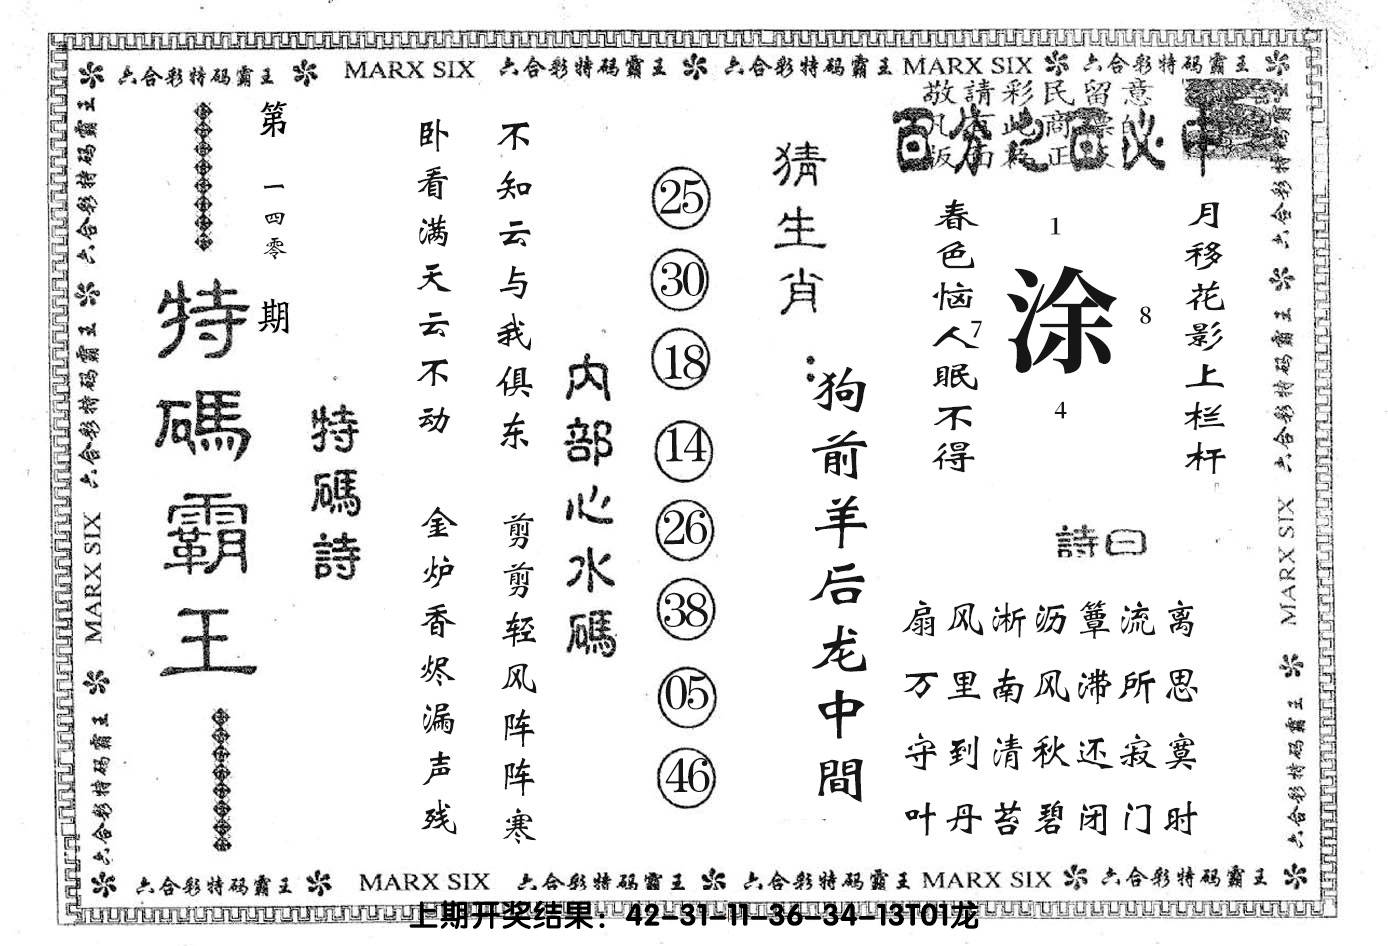 六合彩特码霸王 MARX SIX 六合彩特码霸王 六合彩特码霸王 MARX SIX 六合彩特码霸王
敬請彩民留意
百分之百必中
月移花影上栏杆
春色恼人眠不得
1
7
涂
8
4
詩曰
扇风淅沥簟流离
万里南风滞所思
守到清秋还寂寞
叶丹苔碧闭门时
猜生肖:
狗前羊后龙中間
内部心水碼
25
30
18
14
26
38
05
46
不知云与我俱东
卧看满天云不动
剪剪轻风阵阵寒
金炉香烬漏声残
特碼詩
第一四零期
特碼霸王
六合彩特码霸王 六合彩特码霸王 MARX SIX 六合彩特码霸王
六合彩特码霸王 六合彩特码霸王 MARX SIX 六合彩特码霸王
六合彩特码霸王 MARX SIX 六合彩特码霸王 六合彩特码霸王 MARX SIX 六合彩特码霸王
上期开奖结果：42-31-11-36-34-13T01龙